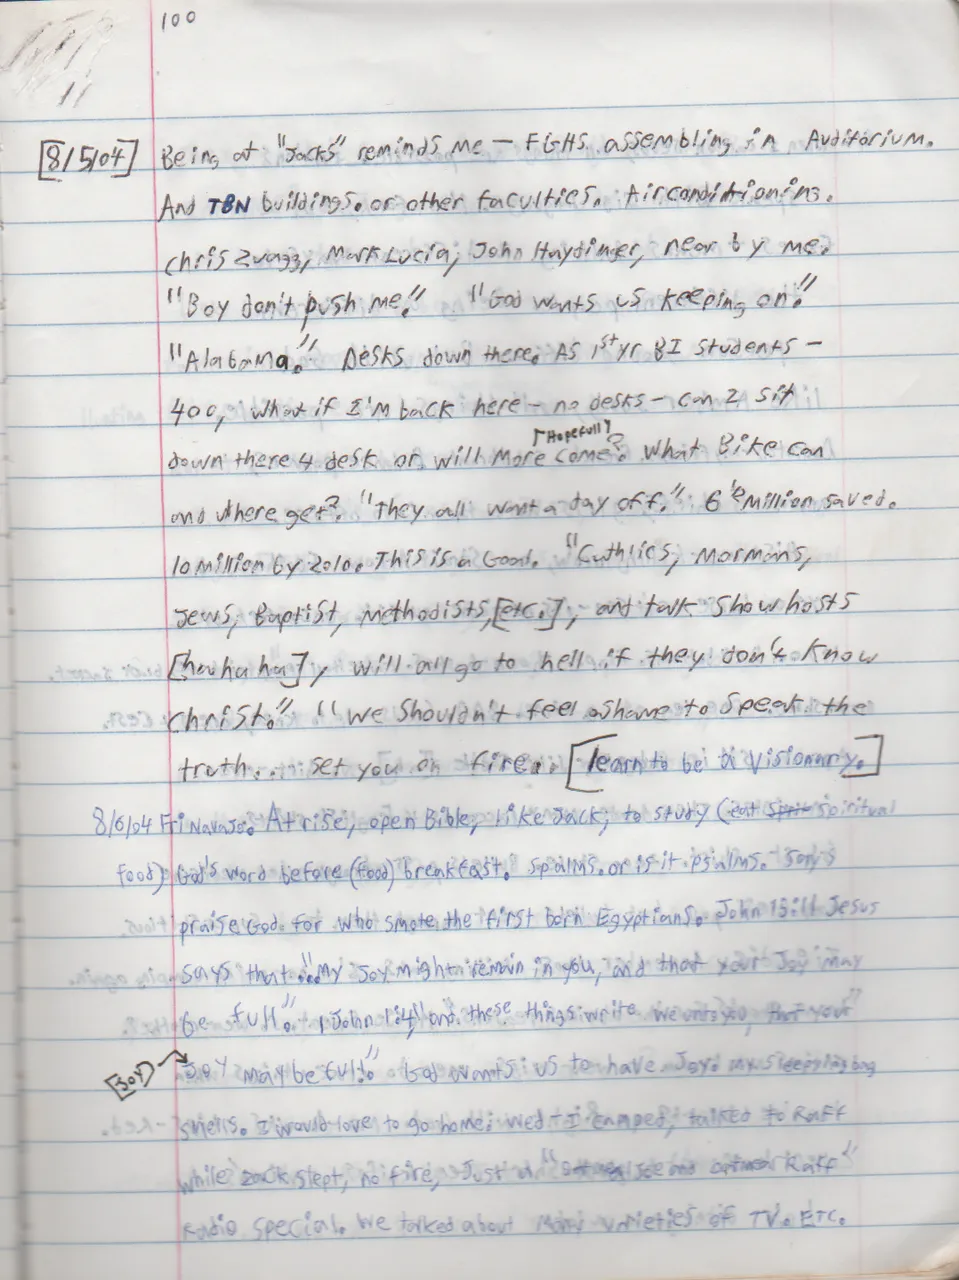 100
[8/5/04] Being at "Jacks" reminds me — FGHS assembling in Auditorium.
And TBN buildings. or other faculties. Airconditioning.
Chris Zuagg, Mark Lucia, John Haydinger, near by me.
"Boy don't push me." "God wants us keeping on."
"Alabama." Desks down there. As 1st yr BI students –
400, what if I'm back here – no desks – can I sit
[Hopefully]
down there 4 desk or will more come? What Bike can
and where get? "They all want a day off." 6 ½ Million saved.
10 million by 2010. This is a Goal. "Cathlics, Mormans,
Jews, Baptist, Methodists, [etc.], and talk show hosts
[ha ha ha], will all go to hell if they don't know
Christ." "We shouldn't feel ashame to speak the
truth... set you on fire. [learn to be a visionary.]
8/6/04 Fri Navajo. At rise, open Bible, like Jack, to study (eat spiritual
food) God's word before (food) breakfast. Spalms. or is it psalms. Says
praise God for who smote the first born Egyptians. John 15:11 Jesus
says that "My Joy might remain in you, and that your Joy may
be full". 1 John 1:4, "and these things write we unto you, that your
[JOY] Joy may be full." God wants us to have Joy. My sleeping bag
smells. I would love to go home. Wed – I camped, talked to Raff
while zack slept, no fire, Just a " Joe and Raff"
Radio special. We talked about many varieties of TV. ETC.